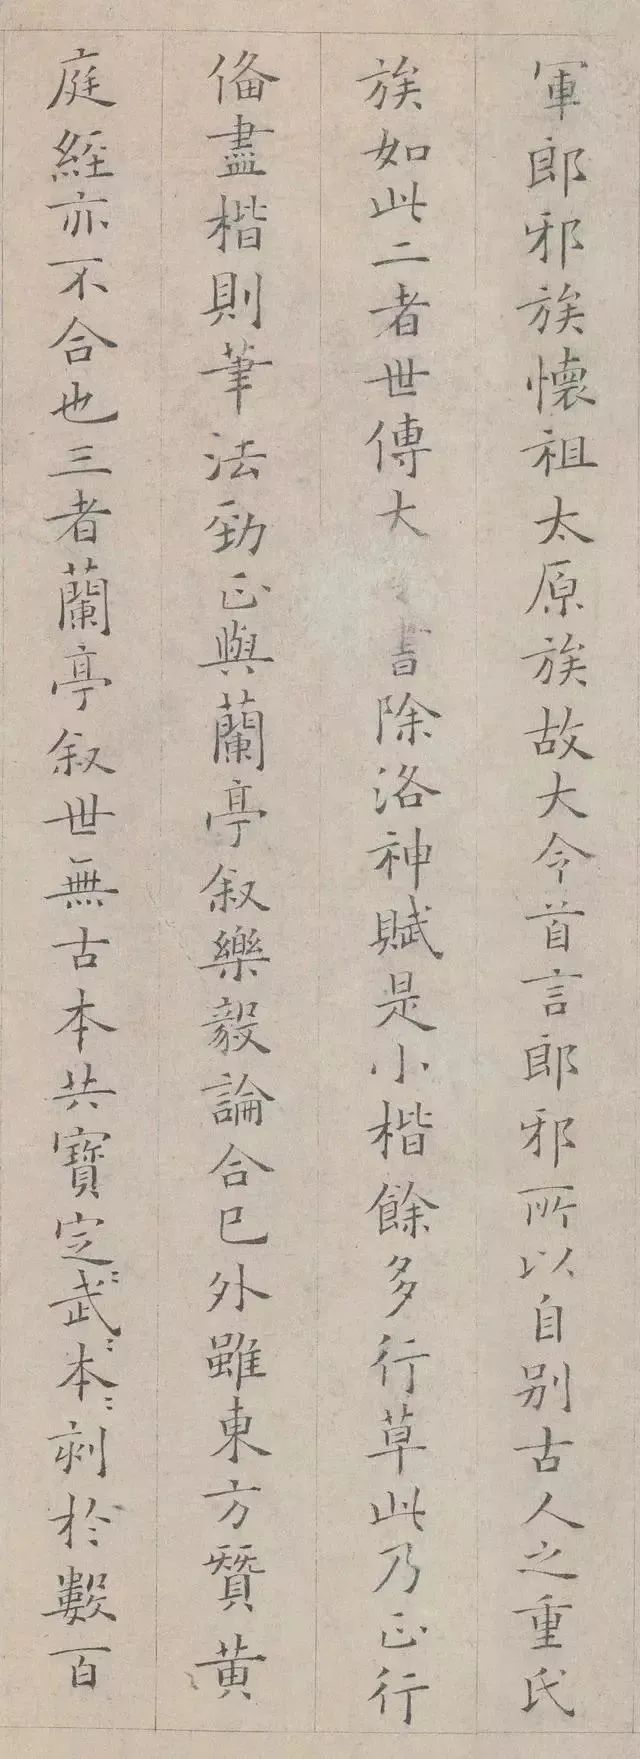 軍郎邪族懷祖太原族故大令首言郎邪所以自别古人之重氏
族如此二者世傳大書除洛神賦是小楷餘多行草此乃正行
俻盡楷則筆法勁正與蘭亭叙樂毅論合已外雖東方贊黄
庭經亦不合也三者蘭亭叙世無古本共寳定武〻本〻刻於數百